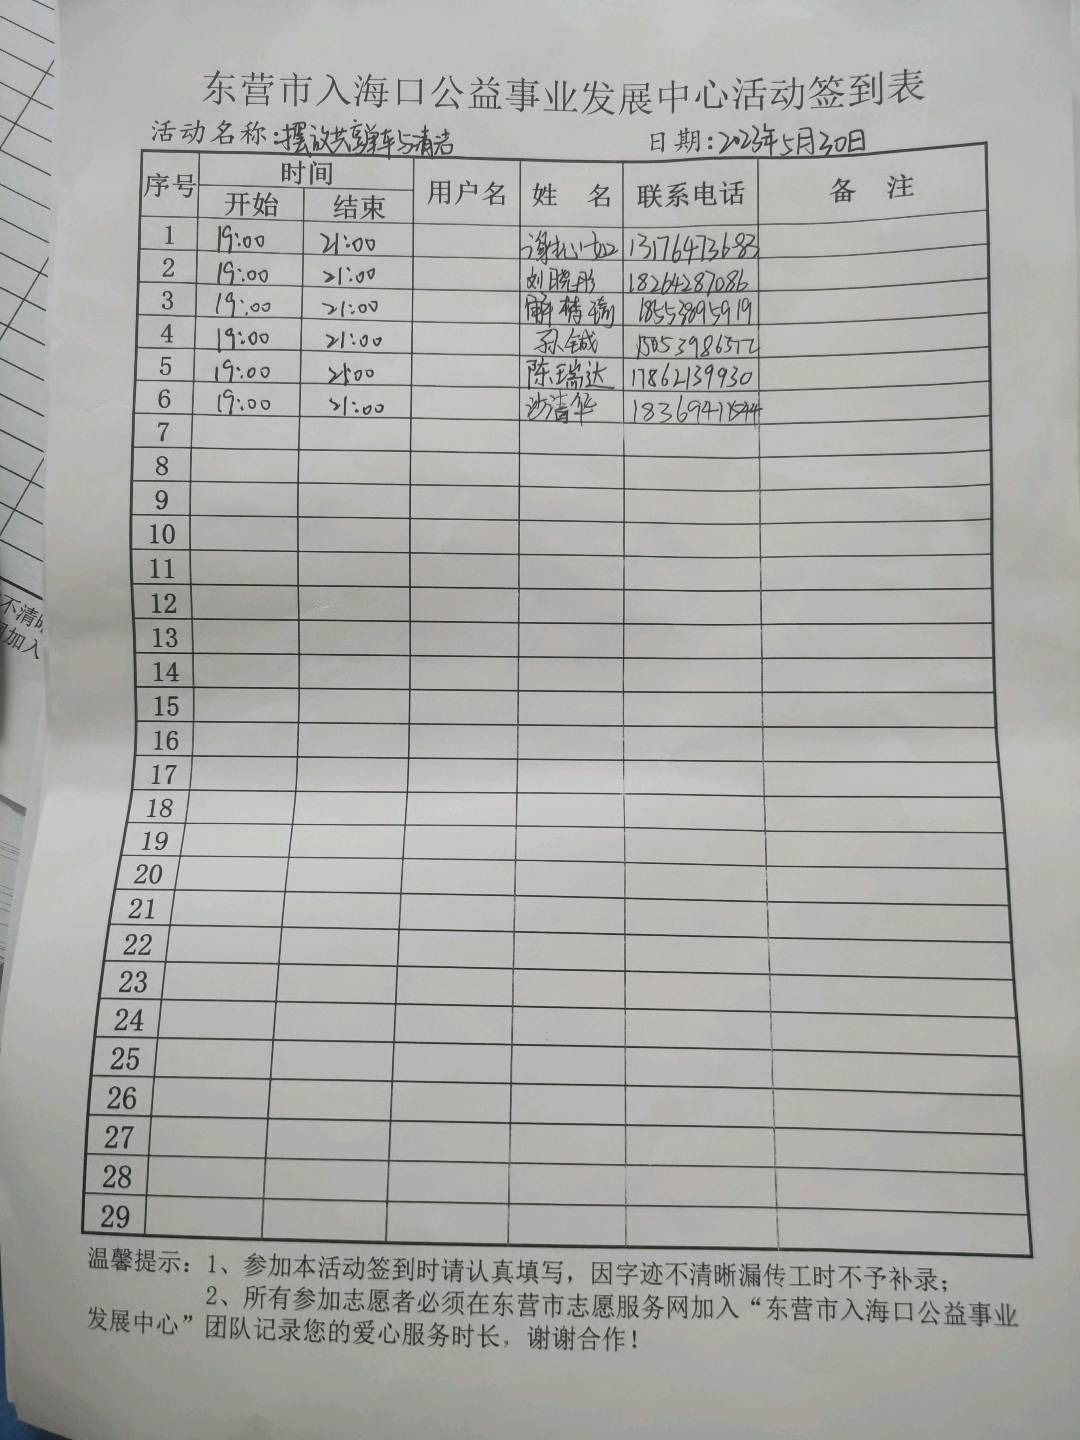 东营市入海口公益事业发展中心活动签到表
活动名称:摆放共享单车与清洁 日期:2023年5月30日
序号 时间 用户名 姓 名 联系电话 备 注
开始 结束
1 19:00 21:00 13176473683
2 19:00 21:00 刘晓彤 18264287086
3 19:00 21:00 18553895919
4 19:00 21:00 孙铖
5 19:00 21:00 陈瑞达 17862139930
6 19:00 21:00 沙清华
7
8
9
10
11
12
13
14
15
16
17
18
19
20
21
22
23
24
25
26
27
28
29
温馨提示:1、参加本活动签到时请认真填写，因字迹不清晰漏传工时不予补录；
2、所有参加志愿者必须在东营市志愿服务网加入“东营市入海口公益事业
发展中心”团队记录您的爱心服务时长，谢谢合作！
不清晰
加入